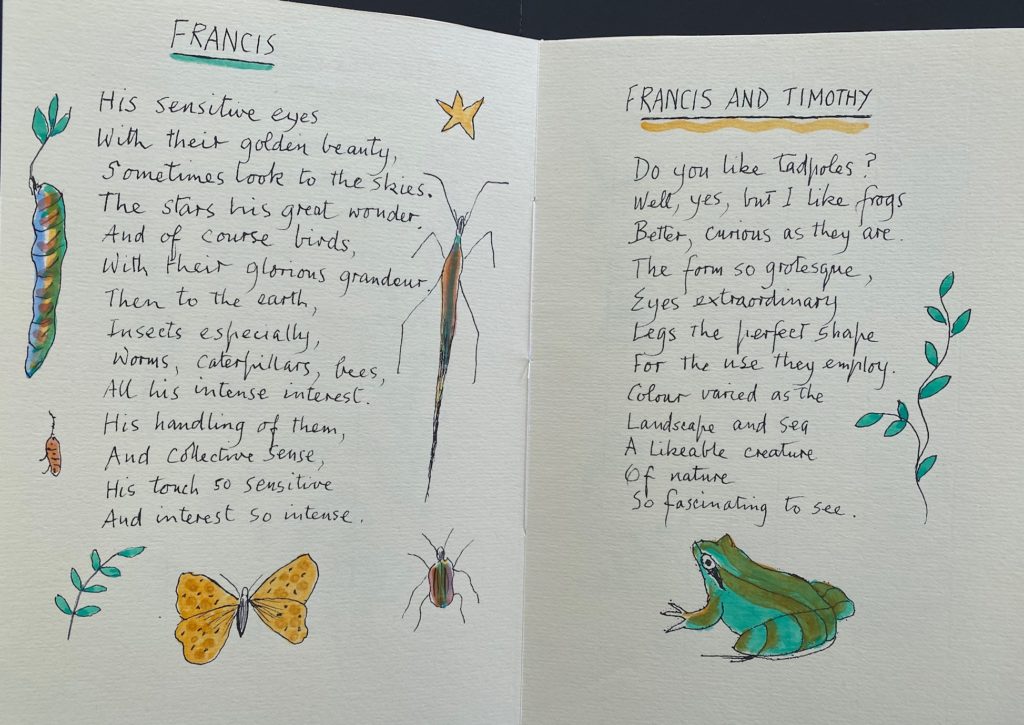 FRANCIS
His sensitive eyes
With their golden beauty,
Sometimes look to the skies.
The stars his great wonder,
And of course birds,
With their glorious grandeur.
Then to the earth,
Insects especially,
Worms, caterpillars, bees,
All his intense interest.
His handling of them,
And collective sense,
His touch so sensitive
And interest so intense.
FRANCIS AND TIMOTHY
Do you like tadpoles?
Well, yes, but I like frogs
Better, curious as they are.
The form so grotesque,
Eyes extraordinary
Legs the perfect shape
For the use they employ.
Colour varied as the
Landscape and sea
A likeable creature
Of nature
So fascinating to see.